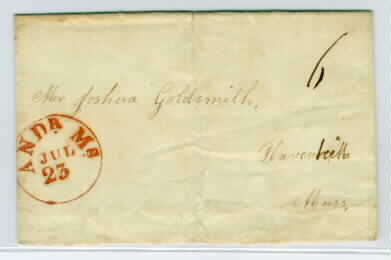 6
Mr Joshua Goldsmith,
Haverhill
Mass,
AND.R MS
JUL
23